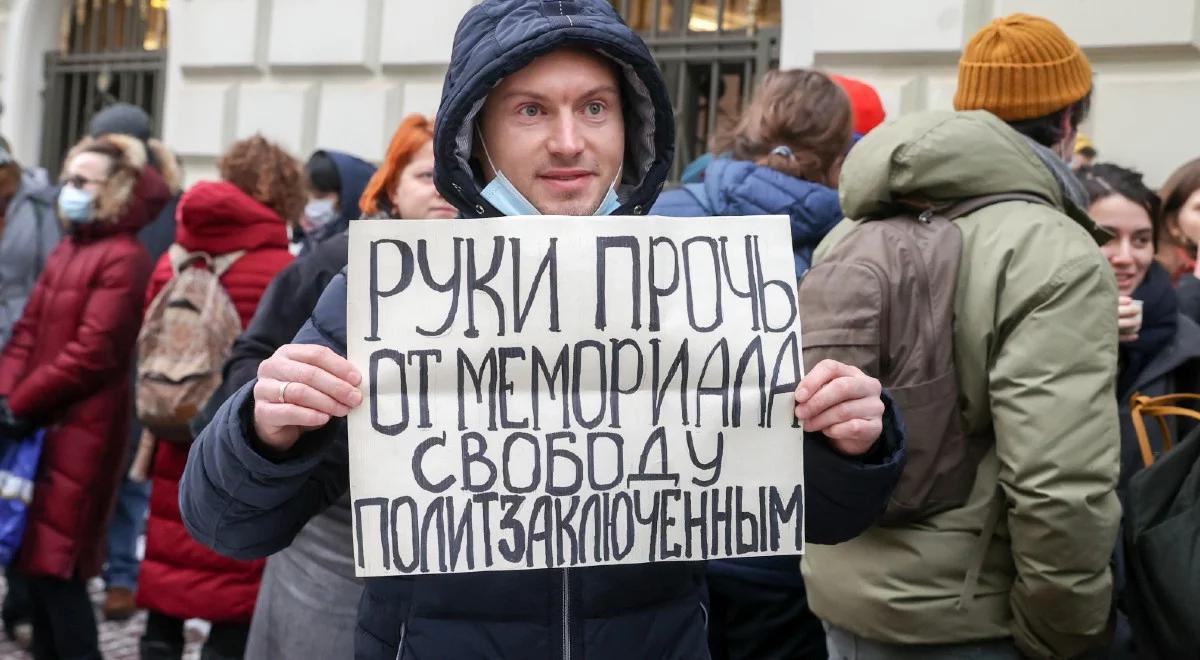 РУКИ ПРОЧЬ
ОТ МЕМОРИАЛА
СВОБОДУ
ПОЛИТЗАКЛЮЧЕННЫМ